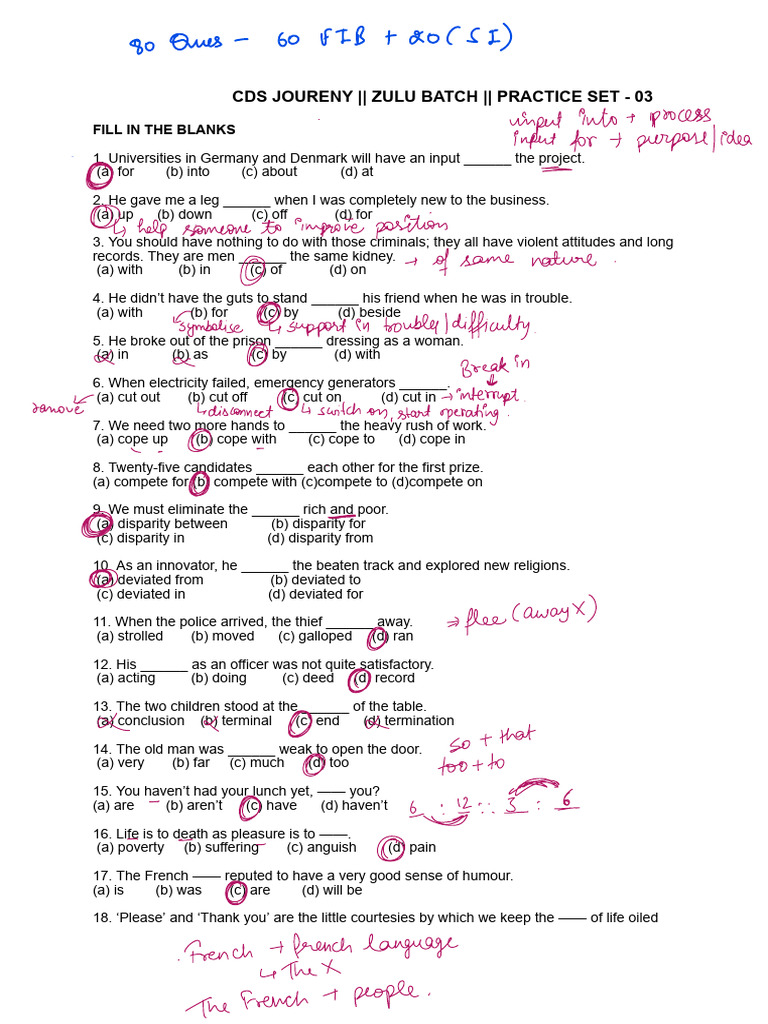 80 Ques - 60 FIB + 20 (SI)
CDS JOURENY || ZULU BATCH || PRACTICE SET - 03
input into → process
FILL IN THE BLANKS
input for → purpose/idea
1. Universities in Germany and Denmark will have an input ______ the project.
(a) for (b) into (c) about (d) at
2. He gave me a leg ______ when I was completely new to the business.
(a) up (b) down (c) off (d) for
↳ help someone to improve position
3. You should have nothing to do with those criminals; they all have violent attitudes and long
records. They are men ______ the same kidney. → of same nature.
(a) with (b) in (c) of (d) on
4. He didn’t have the guts to stand ______ his friend when he was in trouble.
(a) with (b) for (c) by (d) beside
symbolise ↳ support in trouble/difficulty.
5. He broke out of the prison ______ dressing as a woman.
(a) in (b) as (c) by (d) with
Break in
6. When electricity failed, emergency generators ______.
(a) cut out (b) cut off (c) cut on (d) cut in → interrupt.
remove ↳ disconnect ↳ switch on, start operating.
7. We need two more hands to ______ the heavy rush of work.
(a) cope up (b) cope with (c) cope to (d) cope in
8. Twenty-five candidates ______ each other for the first prize.
(a) compete for (b) compete with (c)compete to (d)compete on
9. We must eliminate the ______ rich and poor.
(a) disparity between (b) disparity for
(c) disparity in (d) disparity from
10. As an innovator, he ______ the beaten track and explored new religions.
(a) deviated from (b) deviated to
(c) deviated in (d) deviated for
11. When the police arrived, the thief ______ away. ⇒ flee (away X)
(a) strolled (b) moved (c) galloped (d) ran
12. His ______ as an officer was not quite satisfactory.
(a) acting (b) doing (c) deed (d) record
13. The two children stood at the ______ of the table.
(a) conclusion (b) terminal (c) end (d) termination
so + that
14. The old man was ______ weak to open the door.
(a) very (b) far (c) much (d) too
too + to
15. You haven’t had your lunch yet, —— you?
(a) are (b) aren’t (c) have (d) haven’t 6 : 12 :: 3 : 6
16. Life is to death as pleasure is to ——.
(a) poverty (b) suffering (c) anguish (d) pain
17. The French —— reputed to have a very good sense of humour.
(a) is (b) was (c) are (d) will be
18. ‘Please’ and ‘Thank you’ are the little courtesies by which we keep the —— of life oiled
French → french language
↳ The X
The French → people.